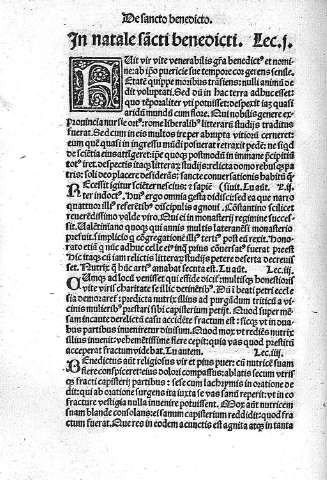 De sancto benedicto.
In natale sācti benedicti. Lec.j.
Uit vir vite venerabilis grā benedict⁹ et nomi-
ne: ab ipō puericie sue tempore cor gerens senile.
Etatē quippe moribus trāsiens: nulli animū de-
dit voluptati. Sed dū in hac terra adhuc esset:
quo tēporaliter vti potuisset: despexit iaȝ quasi
aridū mundū cum flore. Qui nobili genere ex
prouincia nursie ort⁹: rome liberalib⁹ litterarū studijs traditus
fuerat. Sed cum in eis multos ire per abrupta vitiorū cerneret:
eum quē quasi in ingressu mūdi posuerat retraxit pedē: ne siqd
de sciētia eius attigeret: ipse quoqȝ postmodū in immane p̄cipitiū
tot⁹ iret. despectis itaqȝ litterarū studijs: relicta domo rebusqȝ pa-
tris: soli deo placere desiderās: sancte conuersationis habitū q̄-
Recessit igitur sciēter nescius: ⁊ sapiē (siuit. Lu aūt. L.ij
ter indoct⁹. Hui⁹ ego omnia gesta nō didici: sed ea que narro
quattuor illi⁹ referētib⁹ discipulis agnoui. Cōstantino scilicet
reuerēdissimo valde viro. Qui ei in monasterij regimine succes-
sit. Ualētiniano quoqȝ qui annis multis lateranēsi monasterio
prefuit. simplicio qui cōgregationē illi⁹ terti⁹ post eū rexit. Hono-
rato etiā q nūc adhuc celle ei⁹ in qua pri⁹ cōuersat⁹ fuerat preest
Hic itaqȝ cū iam relictis litterarū studijs petere deserta decreuis
set. Nutrix q̄ hūc arti⁹ amabat secuta est. Lu aūt. Lec.iij.
Cumqȝ ad locū venisset qui effide dicit̄: multisqȝ honestiorib⁹
vite viris charitate se illic detinētib⁹. Dū ī beati petri eccle
sia demorarēt̄: predicta nutrix illius ad purgādum triticū a vi-
cinis mulierib⁹ prestari sibi capisterium petijt. Quod super mē-
sam incaute derelictū casu accidēte fractum est: sicqȝ vt in du-
abus partibus inueniretur diuisum. Quod mox vt rediēs nutrix
illius inuenit: vehemētissime flere cepit: quia vas quod prestitū
acceperat fractum videbat. Lu autem. Lec.iiij.
Benedictus aūt religiosus vir et pius puer: cū nutricē suam
flere conspiceret: eius dolori compassus: ablatis secum vtris
qȝ fracti capisterij partibus: sese cum lachrymis in oratione de
dit: qui ab oratione surgens ita iuxta se vas sanū reperit: vt in eo
fracture vestigia nulla inuenire potuissent. Mox aūt nutricem
suam blande consolans: ei sanum capisterium reddidit: quod fra-
ctum fuerat. Que res in eodem a cunctis est agnita atqȝ in tanta